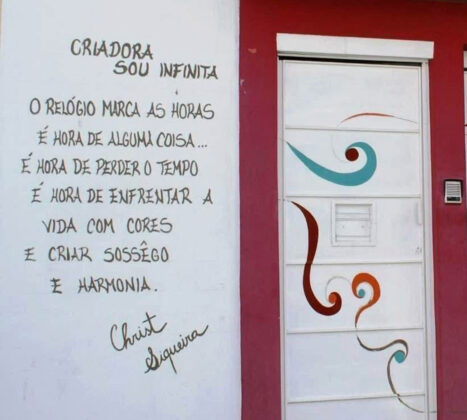 CRIADORA
SOU INFINITA
O RELÓGIO MARCA AS HORAS
É HORA DE ALGUMA COISA...
É HORA DE PERDER O TEMPO
É HORA DE ENFRENTAR A
VIDA COM CORES
E CRIAR SOSSÊGO
E HARMONIA.
Christ
Siqueira